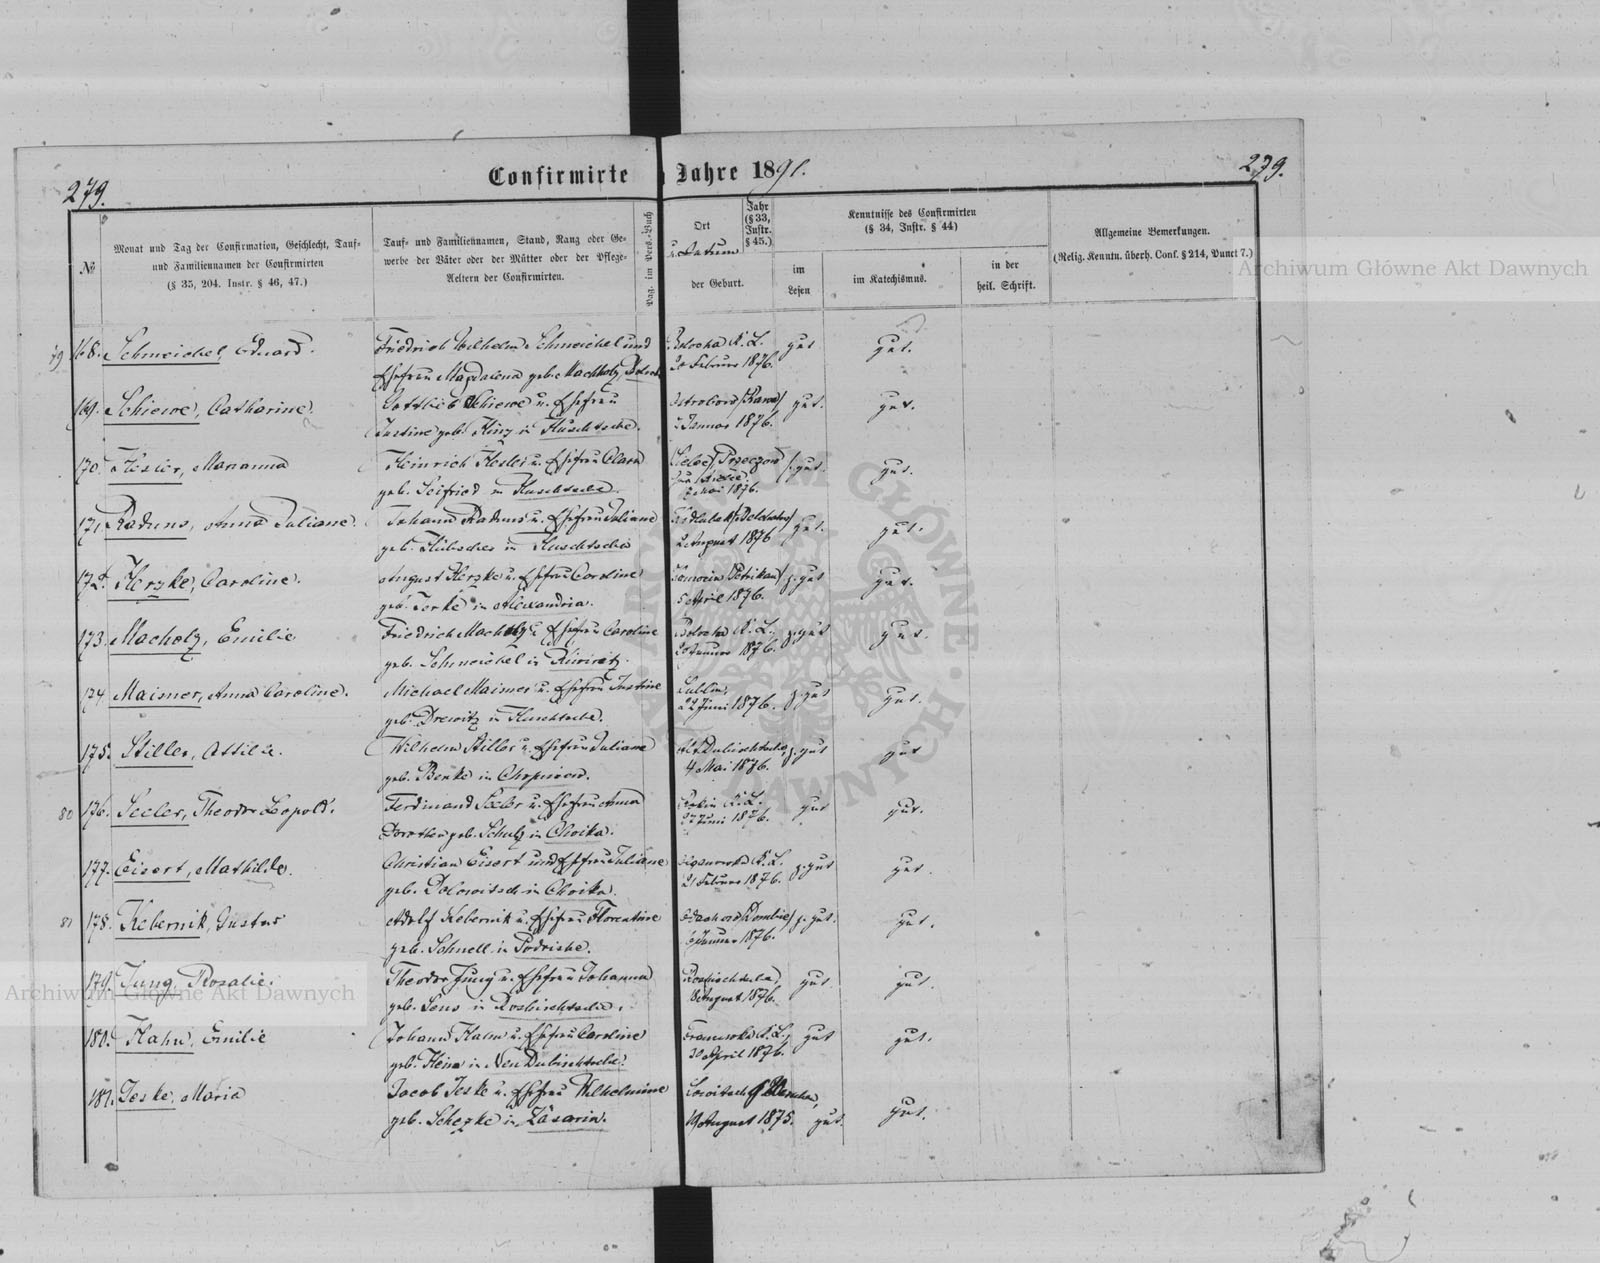 279.
Confirmirte
Jahre 1891.
279.
№
Monat und Tag der Confirmation, Geschlecht, Tauf-
und Familiennamen der Confirmirten
(§ 35, 204. Instr. § 46, 47.)
Tauf- und Familiennamen, Stand, Rang oder Ge-
werbe der Väter oder der Mütter oder der Pflege-
Aeltern der Confirmirten.
Pag. im Pers.-Buch
Ort
u. Datum
der Geburt.
Jahr
(§ 33,
Instr.
§ 45.)
Kenntnisse des Confirmirten
(§ 34, Instr. § 44)
im
Lesen
im Katechismus.
in der
heil. Schrift.
Allgemeine Bemerkungen.
(Relig. Kenntn. überh. Conf. § 214, Punct 7.)
79 168. Schmeichel, Eduard.
Friedrich Wilhelm Schmeichel und
Ehefrau Magdalena geb. Machholz,
K. L.
20 Februar 1876.
gut
gut.
169. Schiewe, Catharine.
Gottlieb Schiewe u. Ehefrau
Justine geb. Hinz in Kuschtsche.
Januar 1876.
gut.
gut.
170. Hesler, Marianna
Heinrich Hesler u. Ehefrau Clara
geb. Seifried in Kuschtsche.
Mai 1876.
s. gut.
gut.
171. Raduns, Anna Juliane.
Johann Raduns u. Ehefrau Juliane
geb. Hübscher in Kuschtsche
2 August 1876
gut.
gut.
172. Herzke, Caroline.
August Herzke u. Ehefrau Caroline
geb. Jerke in Alexandria.
(Petrikau)
5 April 1876.
z. gut
gut.
173. Macholz, Emilie
Friedrich Macholz u. Ehefrau Caroline
geb. Schmeichel in
K. L.
Januar 1876.
z. gut
gut.
174. Maimer, Anna Caroline.
Michael Maimer u. Ehefrau Justine
geb. Drewitz in Kuschtsche.
Lublin,
22 Juni 1876.
z. gut
gut.
175. Stiller, Ottilie.
Wilhelm Stiller u. Ehefrau Juliane
geb. Benke in Chopniow.
4 Mai 1876.
z. gut
gut
80 176. Seeler, Theodor Leopold.
Ferdinand Seeler u. Ehefrau Anna
Dorothea geb. Schulz in Choika.
K. L.
27 Juni 1876.
gut
gut.
177. Eisert, Mathilde.
Christian Eisert und Ehefrau Juliane
geb. in Choika.
K. L.
21 Februar 1876.
z. gut
gut.
81 178. Kebernik, Gustav
Adolf Kebernik u. Ehefrau Florentine
geb. Schnell in Podriske.
Januar 1876.
z. gut.
gut.
179. Jung, Rosalie.
Theodor Jung u. Ehefrau Johanna
geb. Sens in Roschischtsche.
Roschischtsche,
18 August 1876.
gut
gut.
180. Hahn, Emilie
Johann Hahn u. Ehefrau Caroline
geb. Hein in Neu Dubischtsche.
K. L.
30 April 1876.
gut
gut.
181. Jeske, Maria
Jacob Jeske u. Ehefrau Wilhelmine
geb. Schezke in Zäsarin.
19 August 1875.
gut.
gut.
Archiwum Główne Akt Dawnych
Archiwum Główne Akt Dawnych
ARCHIWUM GŁÓWNE AKT DAWNYCH